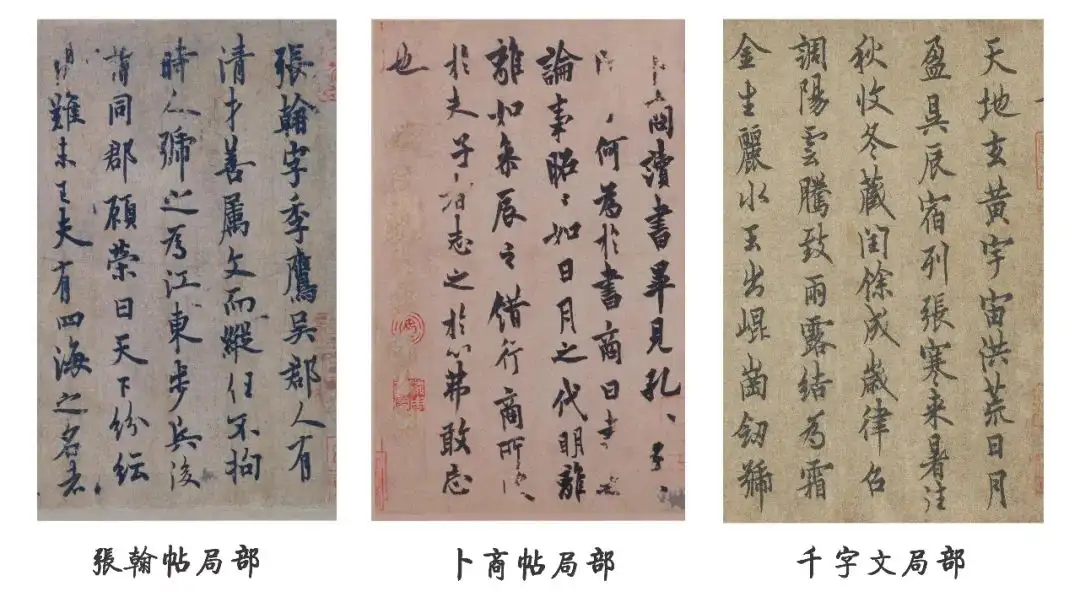 張翰字季鷹吳郡人有
清才善屬文而縱任不拘
時人號之為江東步兵後
同郡顧榮曰天下紛紜
難未已夫有四海之名者
張翰帖局部
商讀書畢見孔、子、
何為於書商曰書
論事昭、如日月之代明離
離如參辰之錯行商所
於夫子者志之於心弗敢忘
也
卜商帖局部
天地玄黃宇宙洪荒日月
盈昃辰宿列張寒來暑往
秋收冬藏閏餘成歲律呂
調陽雲騰致雨露結為霜
金生麗水玉出崐崗劒號
千字文局部